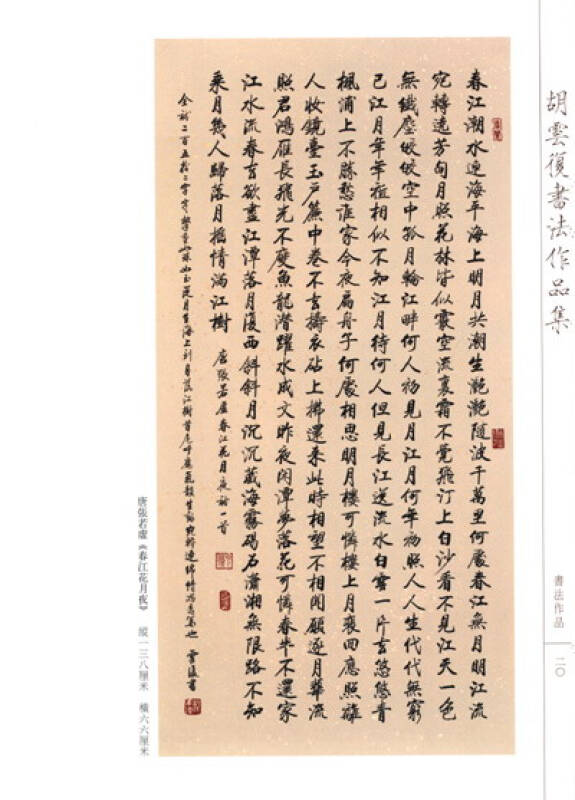 胡雲復書法作品集
書法作品
二〇
春江潮水連海平海上明月共潮生灔灔隨波千萬里何處春江無月明江流
宛轉遶芳甸月照花林皆似霰空流裏霜不覺飛汀上白沙看不見江天一色
無纖塵皎皎空中孤月輪江畔何人初見月江月何年初照人人生代代無窮
已江月年年祗相似不知江月待何人但見長江送流水白雲一片去悠悠青
楓浦上不勝愁誰家今夜扁舟子何處相思明月樓可憐樓上月裵回應照離
人妝鏡臺玉戶簾中卷不去擣衣砧上拂還來此時相望不相聞願逐月華流
照君鴻雁長飛光不度魚龍潛躍水成文昨夜閑潭夢落花可憐春半不還家
江水流春去欲盡江潭落月復西斜斜月沉沉藏海霧碣石瀟湘無限路不知
乘月幾人歸落月搖情滿江樹
唐張若虛春江花月夜詩一首
全詩二百五拾二字 海上 月 江樹 生動宛轉連綿情 也 雲復書
唐張若虛《春江花月夜》 縱一三八厘米 橫六六厘米